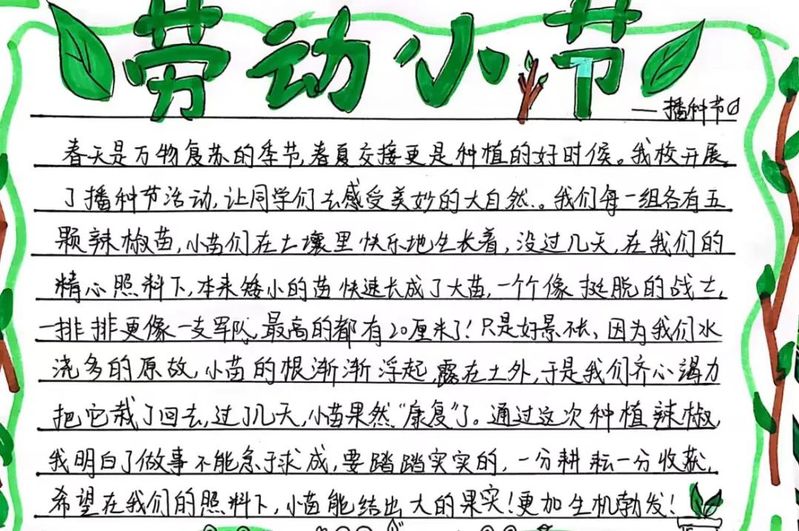 劳动小节
——播种节
春天是万物复苏的季节,春夏交接更是种植的好时候。我校开展
了播种节活动,让同学们去感受美妙的大自然。我们每一组各有五
颗辣椒苗,小苗们在土壤里快乐地生长着,没过几天,在我们的
精心照料下,本来矮小的苗快速长成了大苗,一个个像挺脱的战士,
一排排更像一支军队,最高的都有20厘米了!只是好景不长、因为我们水
浇多的原故,小苗的根渐渐浮起,露在土外,于是我们齐心竭力
把它栽了回去,过了几天,小苗果然“康复”了。通过这次种植辣椒,
我明白了做事不能急于求成,要踏踏实实的,一分耕耘一分收获,
希望在我们的照料下,小苗能结出大的果实!更加生机勃发!